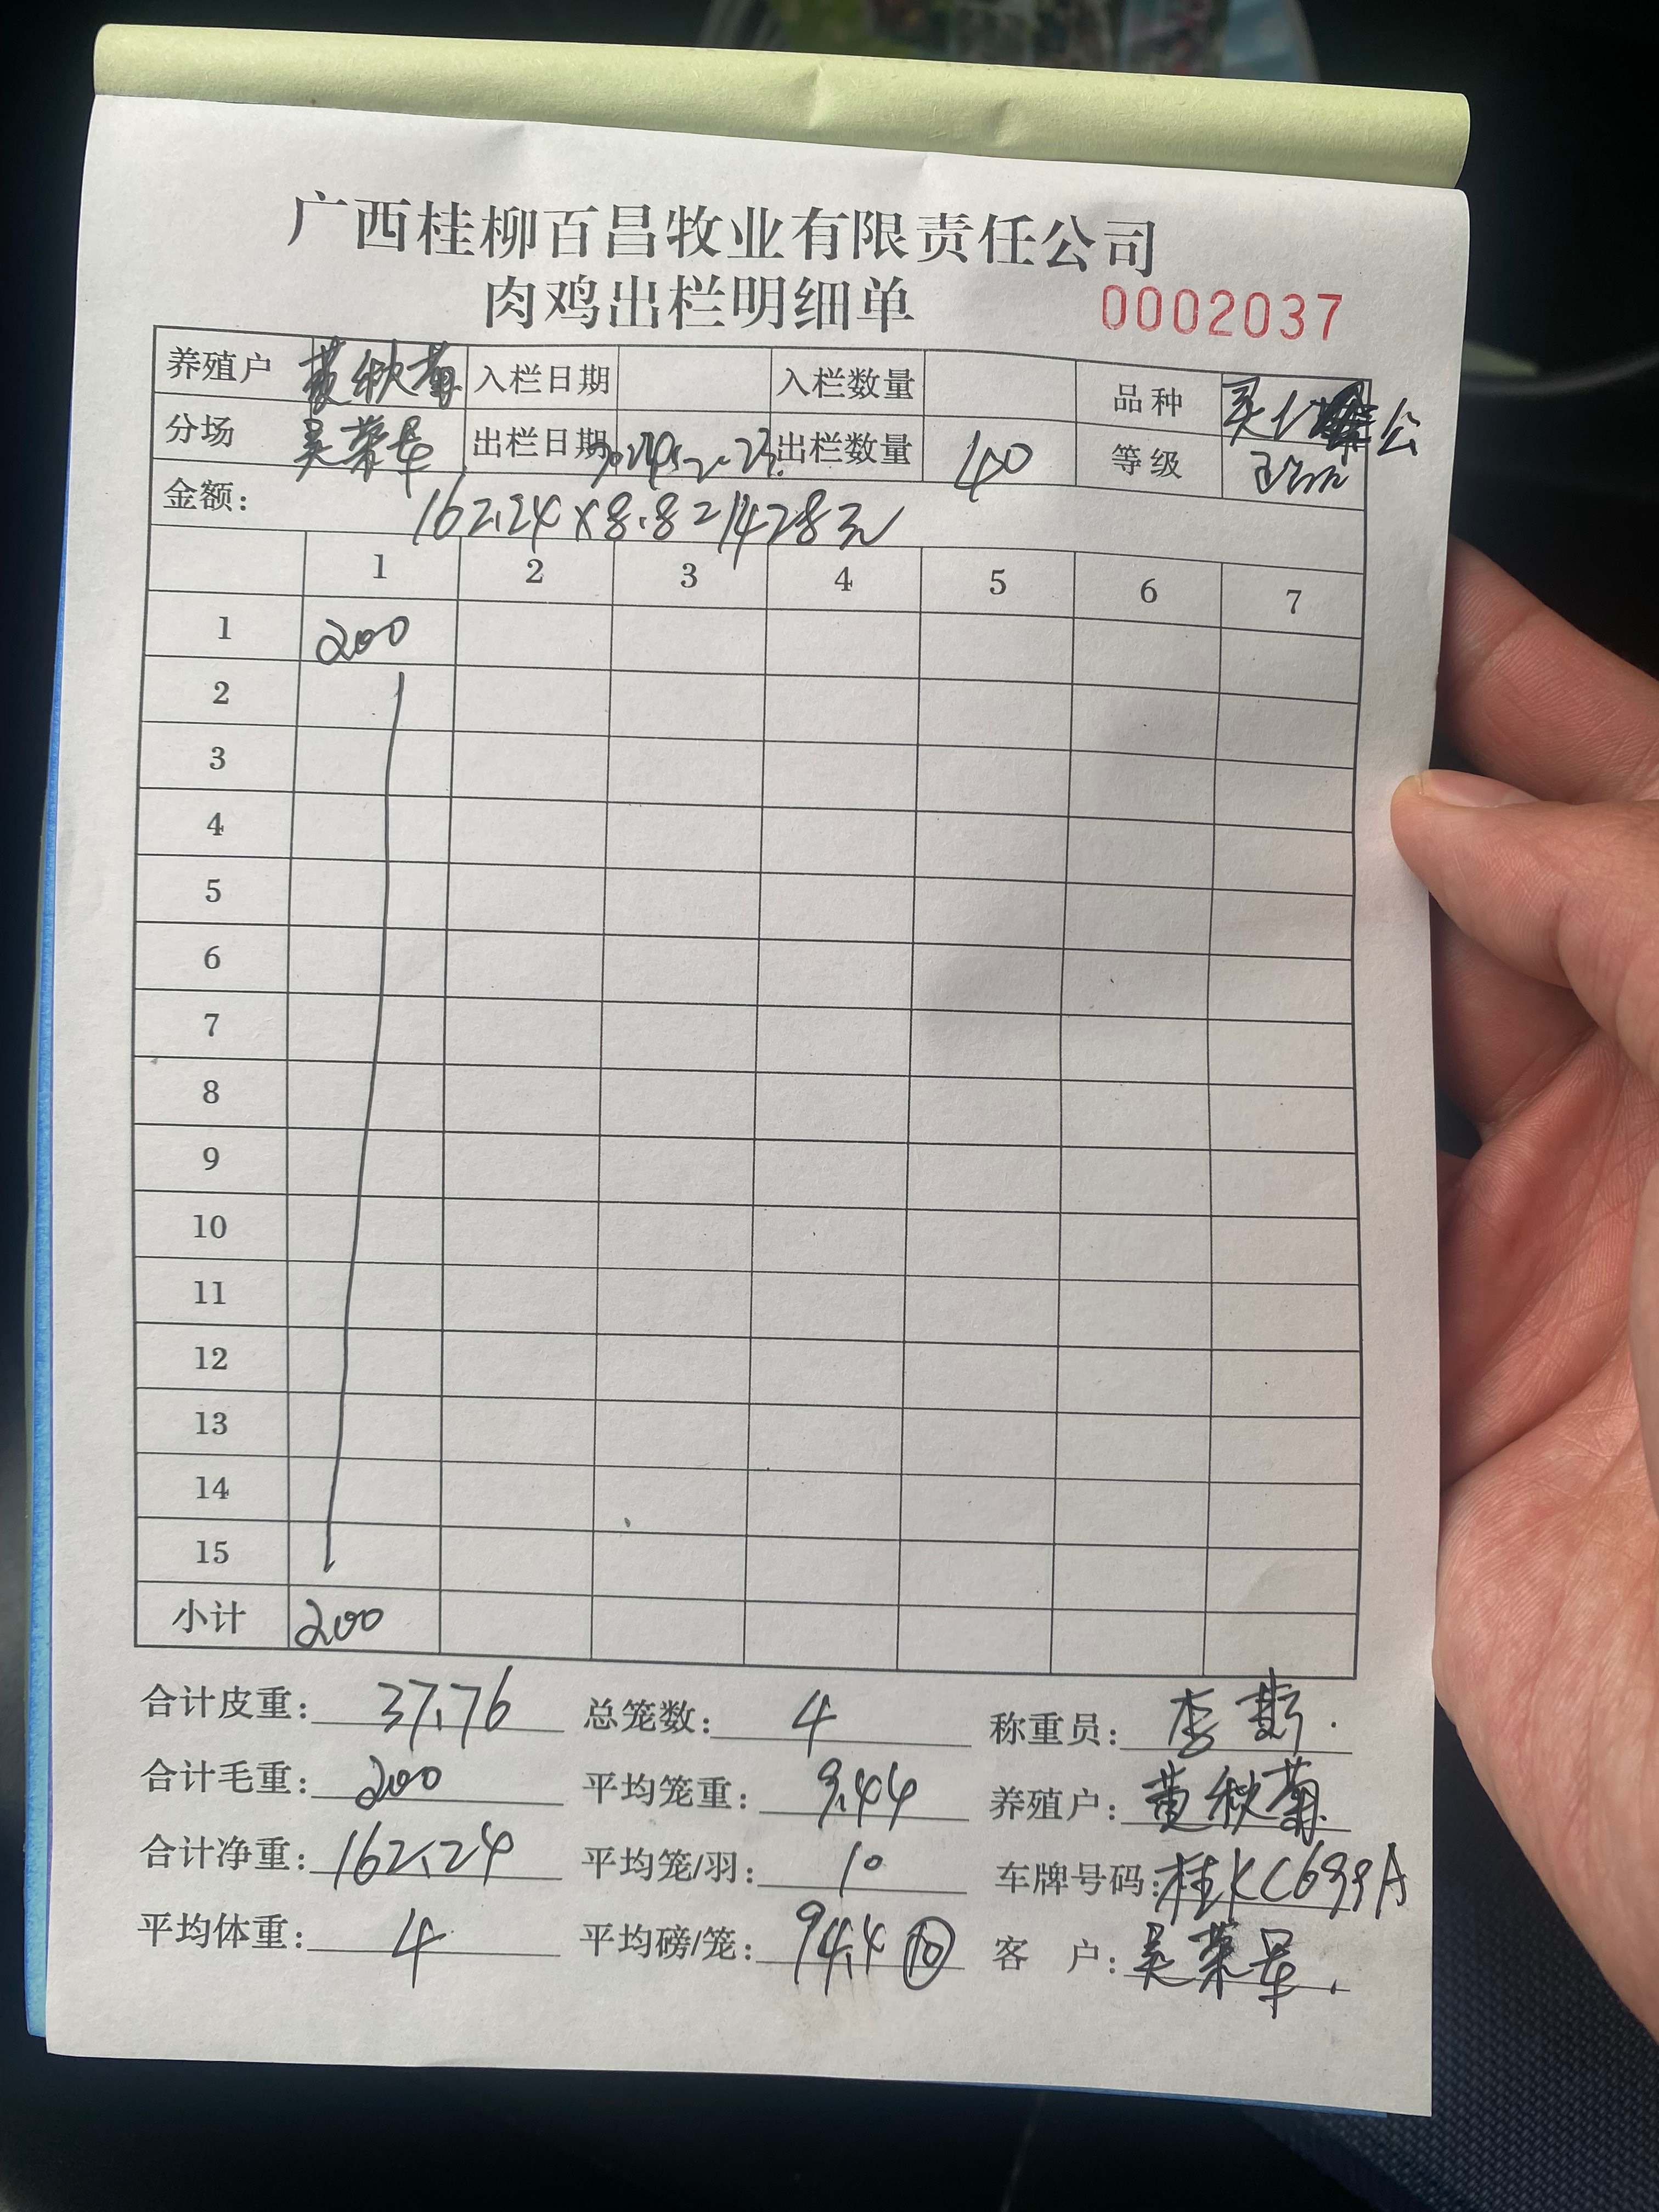 广西桂柳百昌牧业有限责任公司
肉鸡出栏明细单 0002037
养殖户 黄秋菊 入栏日期 入栏数量 品种 公
分场 吴荣 出栏日期 出栏数量 40 等级
金额: 162.24×8.8=1428元
1 2 3 4 5 6 7
1 200
2
3
4
5
6
7
8
9
10
11
12
13
14
15
小计 200
合计皮重: 37.76 总笼数: 4 称重员: 李
合计毛重: 200 平均笼重: 9.44 养殖户: 黄秋菊
合计净重: 162.24 平均笼/羽: 10 车牌号码: 桂KC699A
平均体重: 4 平均磅/笼: 94.4 10 客 户: 吴荣